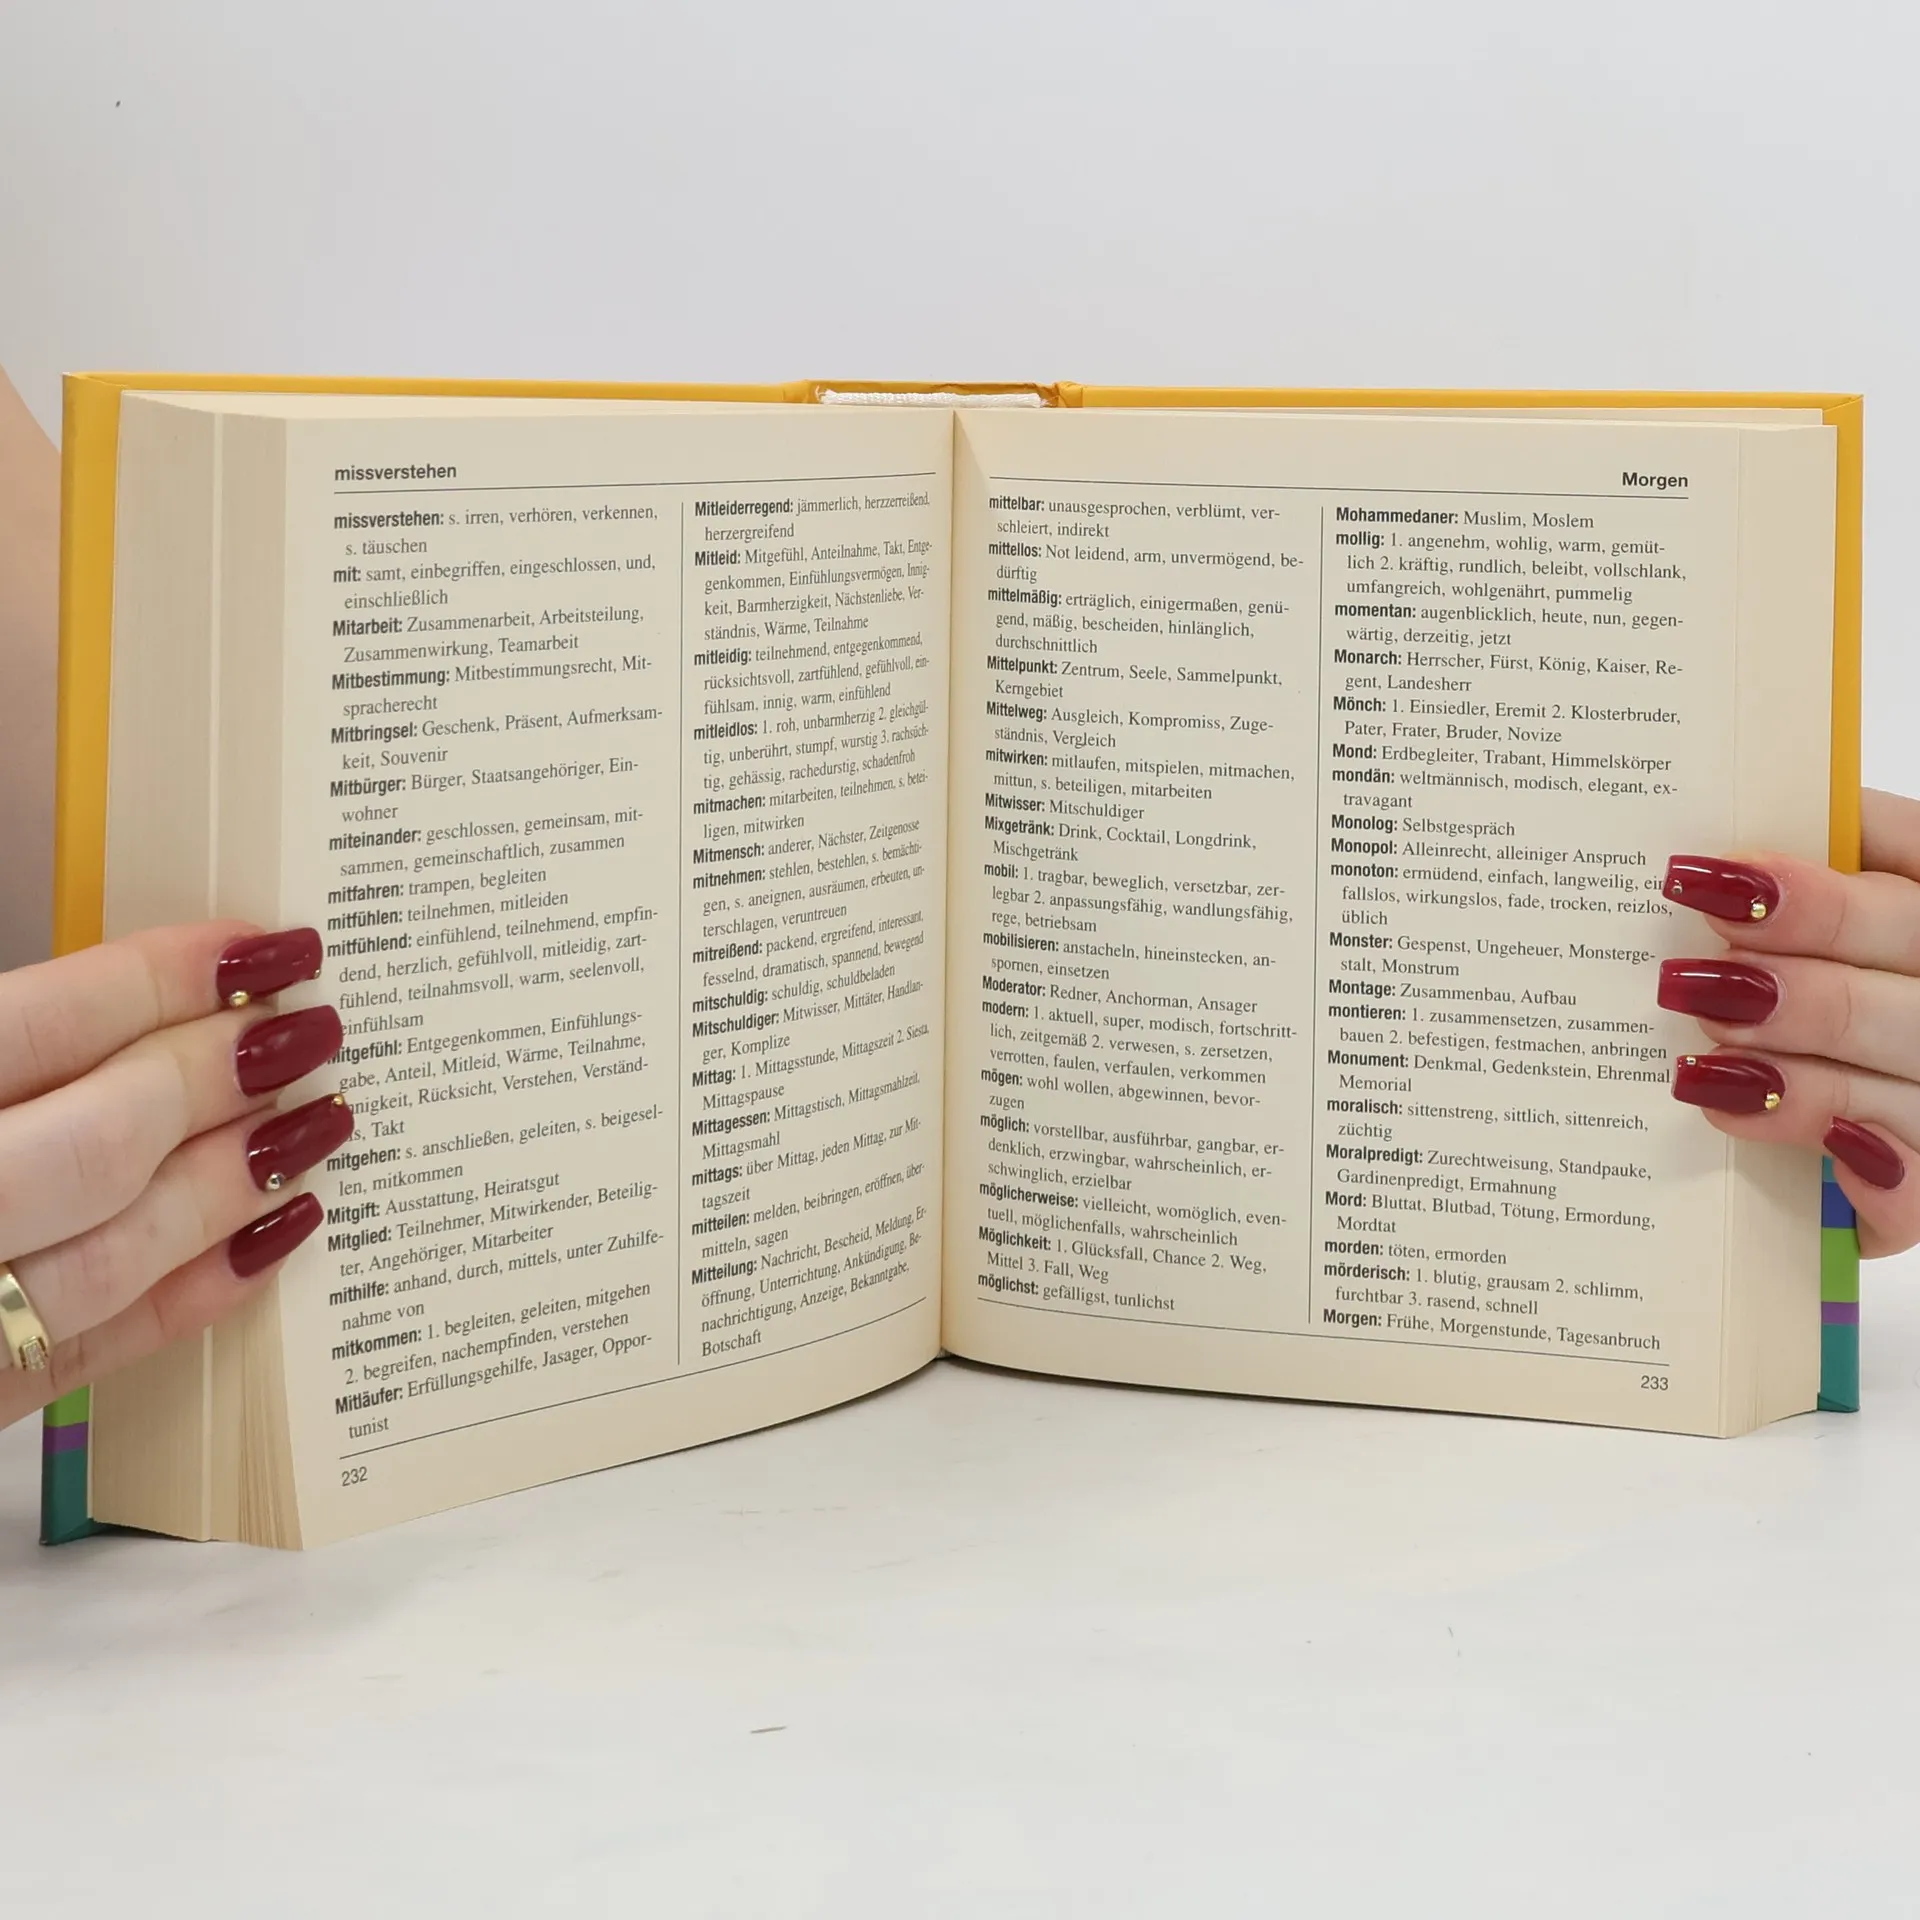 missverstehen
missverstehen: s. irren, verhören, verkennen,
s. täuschen
mit: samt, einbegriffen, eingeschlossen, und,
einschließlich
Mitarbeit: Zusammenarbeit, Arbeitsteilung,
Zusammenwirkung, Teamarbeit
Mitbestimmung: Mitbestimmungsrecht, Mit-
spracherecht
Mitbringsel: Geschenk, Präsent, Aufmerksam-
keit, Souvenir
Mitbürger: Bürger, Staatsangehöriger, Ein-
wohner
miteinander: geschlossen, gemeinsam, mit-
sammen, gemeinschaftlich, zusammen
mitfahren: trampen, begleiten
mitfühlen: teilnehmen, mitleiden
mitfühlend: einfühlend, teilnehmend, empfin-
dend, herzlich, gefühlvoll, mitleidig, zart-
fühlend, teilnahmsvoll, warm, seelenvoll,
einfühlsam
itgefühl: Entgegenkommen, Einfühlungs-
gabe, Anteil, Mitleid, Wärme, Teilnahme,
nnigkeit, Rücksicht, Verstehen, Verständ-
is, Takt
mitgehen: s. anschließen, geleiten, s. beigesel-
len, mitkommen
Mitgift: Ausstattung, Heiratsgut
Mitglied: Teilnehmer, Mitwirkender, Beteilig-
ter, Angehöriger, Mitarbeiter
mithilfe: anhand, durch, mittels, unter Zuhilfe-
nahme von
mitkommen: 1. begleiten, geleiten, mitgehen
2. begreifen, nachempfinden, verstehen
Mitläufer: Erfüllungsgehilfe, Jasager, Oppor-
tunist
Mitleiderregend: jämmerlich, herzzerreißend,
herzergreifend
Mitleid: Mitgefühl, Anteilnahme, Takt, Entge-
genkommen, Einfühlungsvermögen, Innig-
keit, Barmherzigkeit, Nächstenliebe, Ver-
ständnis, Wärme, Teilnahme
mitleidig: teilnehmend, entgegenkommend,
rücksichtsvoll, zartfühlend, gefühlvoll, ein-
fühlsam, innig, warm, einfühlend
mitleidlos: 1. roh, unbarmherzig 2. gleichgül-
tig, unberührt, stumpf, wurstig 3. rachsüch-
tig, gehässig, rachedurstig, schadenfroh
mitmachen: mitarbeiten, teilnehmen, s. betei-
ligen, mitwirken
Mitmensch: anderer, Nächster, Zeitgenosse
mitnehmen: stehlen, bestehlen, s. bemächti-
gen, s. aneignen, ausräumen, erbeuten, un-
terschlagen, veruntreuen
mitreißend: packend, ergreifend, interessant,
fesselnd, dramatisch, spannend, bewegend
mitschuldig: schuldig, schuldbeladen
Mitschuldiger: Mitwisser, Mittäter, Handlan-
ger, Komplize
Mittag: 1. Mittagsstunde, Mittagszeit 2. Siesta,
Mittagspause
Mittagessen: Mittagstisch, Mittagsmahlzeit,
Mittagsmahl
mittags: über Mittag, jeden Mittag, zur Mit-
tagszeit
mitteilen: melden, beibringen, eröffnen, über-
mitteln, sagen
Mitteilung: Nachricht, Bescheid, Meldung, Er-
öffnung, Unterrichtung, Ankündigung, Be-
nachrichtigung, Anzeige, Bekanntgabe,
Botschaft
232
Morgen
mittelbar: unausgesprochen, verblümt, ver-
schleiert, indirekt
mittellos: Not leidend, arm, unvermögend, be-
dürftig
mittelmäßig: erträglich, einigermaßen, genü-
gend, mäßig, bescheiden, hinlänglich,
durchschnittlich
Mittelpunkt: Zentrum, Seele, Sammelpunkt,
Kerngebiet
Mittelweg: Ausgleich, Kompromiss, Zuge-
ständnis, Vergleich
mitwirken: mitlaufen, mitspielen, mitmachen,
mittun, s. beteiligen, mitarbeiten
Mitwisser: Mitschuldiger
Mixgetränk: Drink, Cocktail, Longdrink,
Mischgetränk
mobil: 1. tragbar, beweglich, versetzbar, zer-
legbar 2. anpassungsfähig, wandlungsfähig,
rege, betriebsam
mobilisieren: anstacheln, hineinstecken, an-
spornen, einsetzen
Moderator: Redner, Anchorman, Ansager
modern: 1. aktuell, super, modisch, fortschritt-
lich, zeitgemäß 2. verwesen, s. zersetzen,
verrotten, faulen, verfaulen, verkommen
mögen: wohl wollen, abgewinnen, bevor-
zugen
möglich: vorstellbar, ausführbar, gangbar, er-
denklich, erzwingbar, wahrscheinlich, er-
schwinglich, erzielbar
möglicherweise: vielleicht, womöglich, even-
tuell, möglichenfalls, wahrscheinlich
Möglichkeit: 1. Glücksfall, Chance 2. Weg,
Mittel 3. Fall, Weg
möglichst: gefälligst, tunlichst
Mohammedaner: Muslim, Moslem
mollig: 1. angenehm, wohlig, warm, gemüt-
lich 2. kräftig, rundlich, beleibt, vollschlank,
umfangreich, wohlgenährt, pummelig
momentan: augenblicklich, heute, nun, gegen-
wärtig, derzeitig, jetzt
Monarch: Herrscher, Fürst, König, Kaiser, Re-
gent, Landesherr
Mönch: 1. Einsiedler, Eremit 2. Klosterbruder,
Pater, Frater, Bruder, Novize
Mond: Erdbegleiter, Trabant, Himmelskörper
mondän: weltmännisch, modisch, elegant, ex-
travagant
Monolog: Selbstgespräch
Monopol: Alleinrecht, alleiniger Anspruch
monoton: ermüdend, einfach, langweilig, ein
fallslos, wirkungslos, fade, trocken, reizlos,
üblich
Monster: Gespenst, Ungeheuer, Monsterge-
stalt, Monstrum
Montage: Zusammenbau, Aufbau
montieren: 1. zusammensetzen, zusammen-
bauen 2. befestigen, festmachen, anbringen
Monument: Denkmal, Gedenkstein, Ehrenmal
Memorial
moralisch: sittenstreng, sittlich, sittenreich,
züchtig
Moralpredigt: Zurechtweisung, Standpauke,
Gardinenpredigt, Ermahnung
Mord: Bluttat, Blutbad, Tötung, Ermordung,
Mordtat
morden: töten, ermorden
mörderisch: 1. blutig, grausam 2. schlimm,
furchtbar 3. rasend, schnell
Morgen: Frühe, Morgenstunde, Tagesanbruch
233